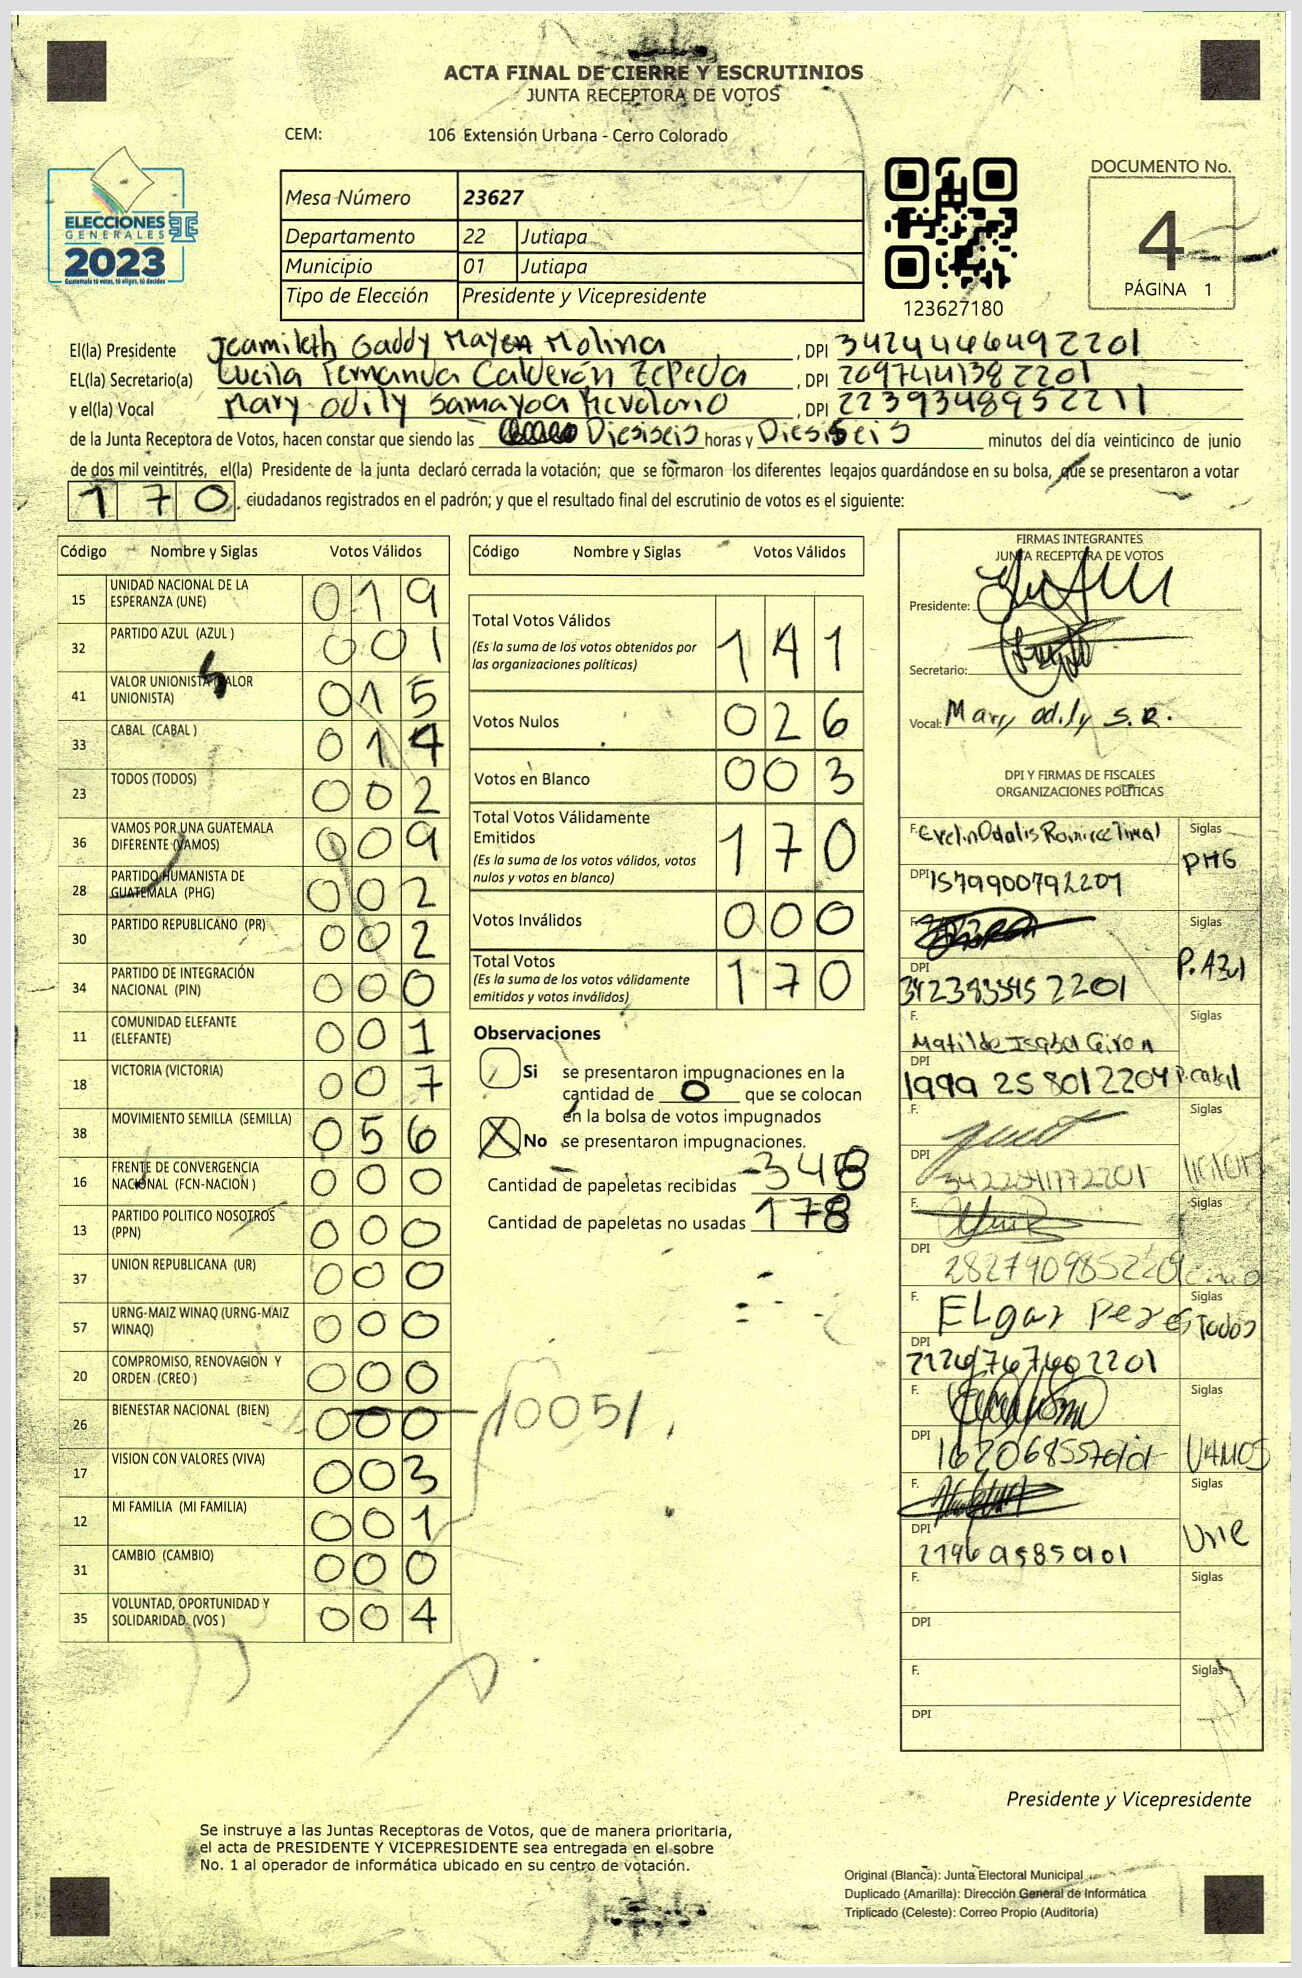 ACTA FINAL DE CIERRE Y ESCRUTINIOS
JUNTA RECEPTORA DE VOTOS
CEM: 106 Extensión Urbana - Cerro Colorado
ELECCIONES
GENERALES
2023
Guatemala tú votas, tú eliges, tú decides
Mesa Número 23627
Departamento 22 Jutiapa
Municipio 01 Jutiapa
Tipo de Elección Presidente y Vicepresidente
123627180
DOCUMENTO No.
4
PÁGINA 1
El(la) Presidente Gaddy Mayen Molina, DPI
EL(la) Secretario(a) Lucila Fernanda Calderón Zepeda, DPI
y el(la) Vocal Mary Odily Samayoa Revolorio, DPI
de la Junta Receptora de Votos, hacen constar que siendo las Dieciseis horas y Diesiseis minutos del día veinticinco de junio
de dos mil veintitrés, el(la) Presidente de la junta declaró cerrada la votación; que se formaron los diferentes legajos guardándose en su bolsa, que se presentaron a votar
170 ciudadanos registrados en el padrón; y que el resultado final del escrutinio de votos es el siguiente:
Código Nombre y Siglas Votos Válidos
15 UNIDAD NACIONAL DE LA ESPERANZA (UNE) 019
32 PARTIDO AZUL (AZUL ) 001
41 VALOR UNIONISTA (VALOR UNIONISTA) 015
33 CABAL (CABAL ) 014
23 TODOS (TODOS) 002
36 VAMOS POR UNA GUATEMALA DIFERENTE (VAMOS) 009
28 PARTIDO HUMANISTA DE GUATEMALA (PHG) 002
30 PARTIDO REPUBLICANO (PR) 002
34 PARTIDO DE INTEGRACIÓN NACIONAL (PIN) 000
11 COMUNIDAD ELEFANTE (ELEFANTE) 001
18 VICTORIA (VICTORIA) 007
38 MOVIMIENTO SEMILLA (SEMILLA) 056
16 FRENTE DE CONVERGENCIA NACIONAL (FCN-NACION ) 000
13 PARTIDO POLITICO NOSOTROS (PPN) 000
37 UNION REPUBLICANA (UR) 000
57 URNG-MAIZ WINAQ (URNG-MAIZ WINAQ) 000
20 COMPROMISO, RENOVACION Y ORDEN (CREO ) 000
26 BIENESTAR NACIONAL (BIEN) 000
17 VISION CON VALORES (VIVA) 003
12 MI FAMILIA (MI FAMILIA) 001
31 CAMBIO (CAMBIO) 000
35 VOLUNTAD, OPORTUNIDAD Y SOLIDARIDAD. (VOS ) 004
Código Nombre y Siglas Votos Válidos
Total Votos Válidos 141
(Es la suma de los votos obtenidos por
las organizaciones políticas)
Votos Nulos 026
Votos en Blanco 003
Total Votos Válidamente
Emitidos 170
(Es la suma de los votos válidos, votos
nulos y votos en blanco)
Votos Inválidos 000
Total Votos 170
(Es la suma de los votos válidamente
emitidos y votos inválidos)
Observaciones
Si se presentaron impugnaciones en la
cantidad de 0 que se colocan
en la bolsa de votos impugnados
X No se presentaron impugnaciones.
Cantidad de papeletas recibidas 348
Cantidad de papeletas no usadas 178
10051
FIRMAS INTEGRANTES
JUNTA RECEPTORA DE VOTOS
Presidente:
Secretario:
Vocal: Mary odily S.R.
DPI Y FIRMAS DE FISCALES
ORGANIZACIONES POLÍTICAS
F. Evelin Odalis Ramirez Siglas
DPI 1579900792201 PHG
F. Siglas
DPI P. Azul
F. Matilde Isabel Giron Siglas
DPI 1999 258012204 P. Cabal
F. Siglas
DPI
F. Siglas
DPI
F. Elgar Perez Siglas
DPI Todos
F. Siglas
DPI VAMOS
F. Siglas
DPI Une
F. Siglas
DPI
F. Siglas
DPI
Presidente y Vicepresidente
Se instruye a las Juntas Receptoras de Votos, que de manera prioritaria,
el acta de PRESIDENTE Y VICEPRESIDENTE sea entregada en el sobre
No. 1 al operador de informática ubicado en su centro de votación.
Original (Blanca): Junta Electoral Municipal
Duplicado (Amarilla): Dirección General de Informática
Triplicado (Celeste): Correo Propio (Auditoria)